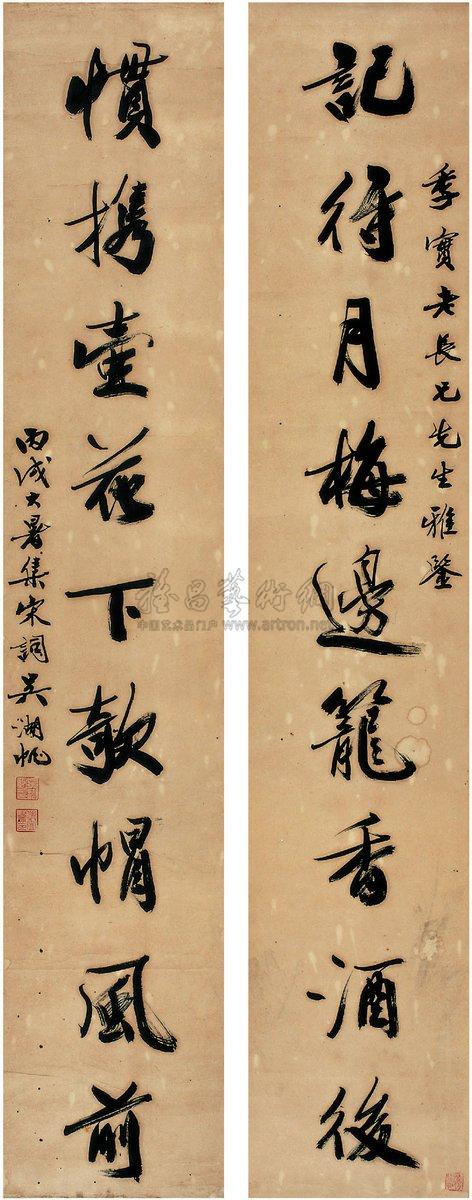 季寶老長兄先生雅鑒
記待月梅邊籠香酒後
慣携壺花下欹帽風前
丙戌大暑集宋詞吳湖帆
雅昌藝術網
中国艺术品门户 www.artron.net